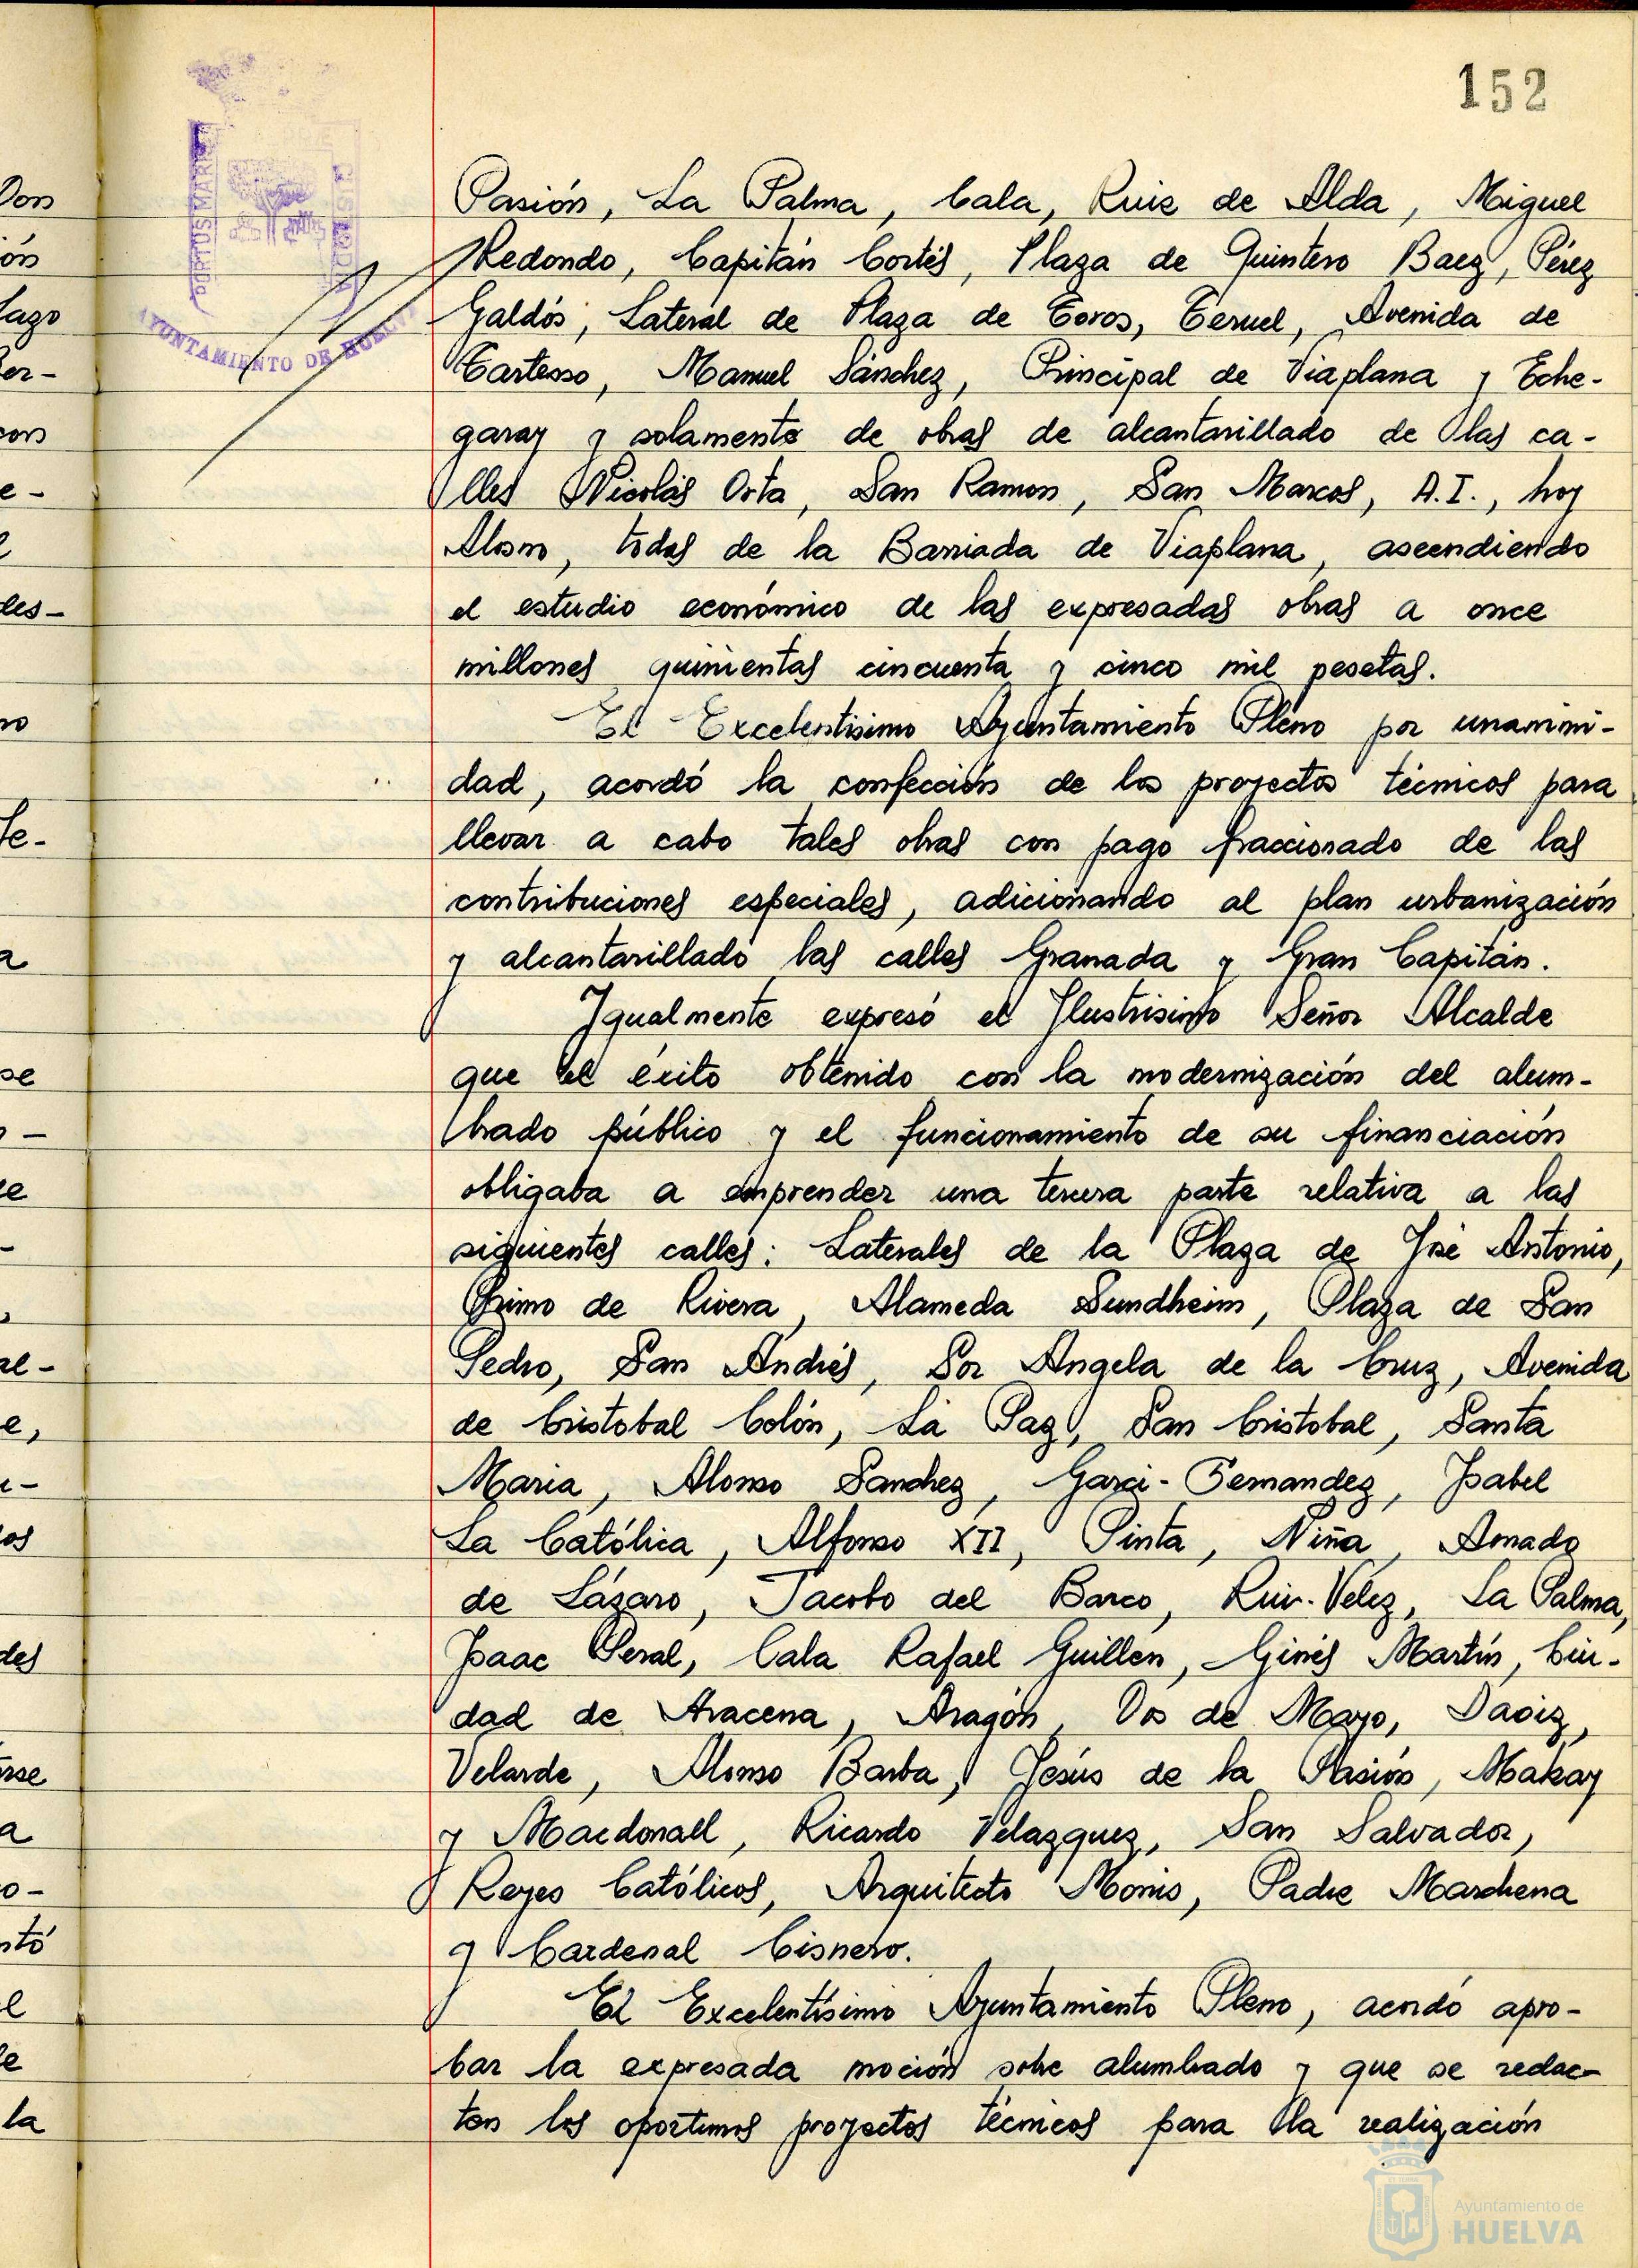 152
PORTUS MARIS
AYUNTAMIENTO DE HUELVA
Pasión, La Palma, Cala, Ruiz de Alda, Miguel
Redondo, Capitán Cortés, Plaza de Quintero Baez, Pérez
Galdós, Lateral de Plaza de Toros, Teruel, Avenida de
Tartesso, Manuel Sánchez, Principal de Viaplana y Eche-
garay y solamente de obras de alcantarillado de las ca-
lles Nicolás Orta, San Ramon, San Marcos, A.I., hoy
Alosno, todas de la Barriada de Viaplana, ascendiendo
el estudio económico de las expresadas obras a once
millones quinientas cincuenta y cinco mil pesetas.
El Excelentísimo Ayuntamiento Pleno por unanimi-
dad, acordó la confección de los proyectos técnicos para
llevar a cabo tales obras con pago fraccionado de las
contribuciones especiales, adicionando al plan urbanización
y alcantarillado las calles Granada y Gran Capitán.
Igualmente expresó el Ilustrisimo Señor Alcalde
que el éxito obtenido con la modernización del alum-
brado público y el funcionamiento de su financiación
obligaba a emprender una tercera parte relativa a las
siguientes calles: Laterales de la Plaza de José Antonio,
Primo de Rivera, Alameda Sundheim, Plaza de San
Pedro, San Andrés, Sor Angela de la Cruz, Avenida
de Cristobal Colón, La Paz, San Cristobal, Santa
Maria, Alonso Sanchez, Garci-Fernandez, Isabel
La Católica, Alfonso XII, Pinta, Niña, Amado
de Lázaro, Jacobo del Barco, Ruiz Velez, La Palma,
Isaac Peral, Cala Rafael Guillén, Ginés Martín, Ciu-
dad de Aracena, Aragón, Dos de Mayo, Daoiz,
Velarde, Alonso Barba, Jesús de la Pasión, Makay
y Macdonall, Ricardo Velazquez, San Salvador,
Reyes Católicos, Arquitecto Monis, Padre Marchena
y Cardenal Cisnero.
El Excelentísimo Ayuntamiento Pleno, acordó apro-
bar la expresada moción sobre alumbrado y que se redac-
ten los oportunos proyectos técnicos para la realización
Ayuntamiento de
HUELVA